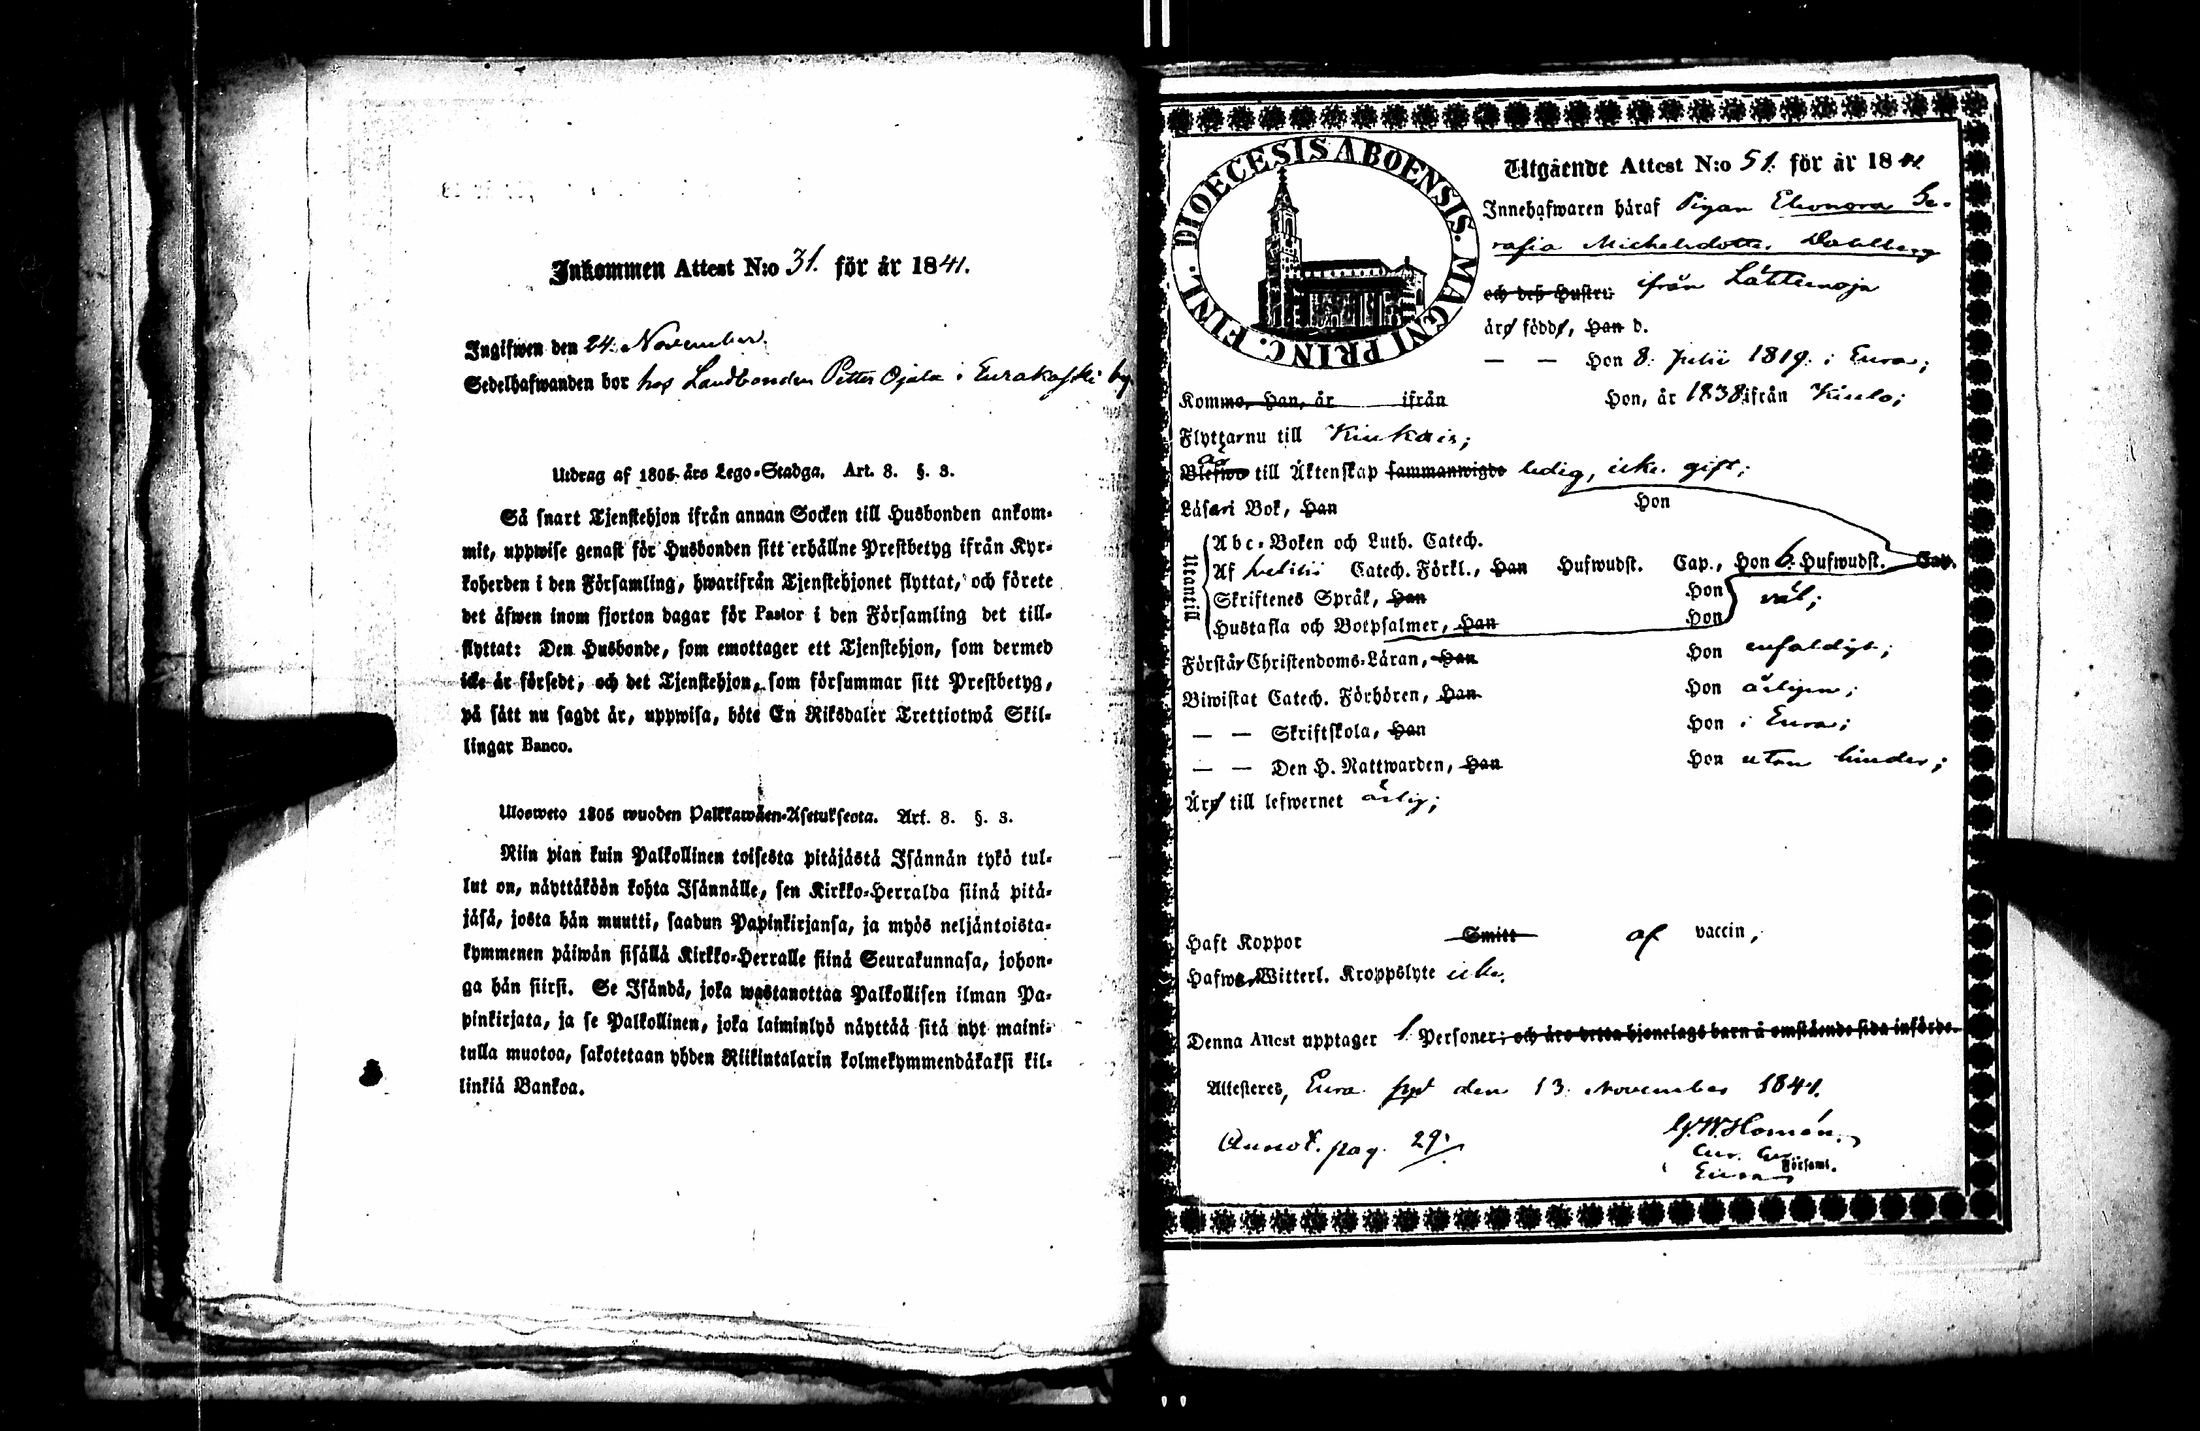 Inkommen Attest N:o 31. för år 1841.
Ingifwen den 24. November.
Sedelhafwanden bor hos Landbonden Petter Ojala i Eurakoski by.
Utdrag af 1805 års Lego-Stadga. Art. 8. §. 3.
Så snart Tjenstehjon ifrån annan Socken till Husbonden ankom-
mit, uppwise genast för Husbonden sitt erhållne Prestbetyg ifrån Kyr-
koherden i den Församling, hwarifrån Tjenstehjonet flyttat, och förete
det äfwen inom fjorton dagar för Pastor i den Församling det till-
flyttat: Den Husbonde, som emottager ett Tjenstehjon, som dermed
icke är försedt, och det Tjenstehjon, som försummar sitt Prestbetyg,
på sätt nu sagdt är, uppwisa, böte En Riksdaler Trettiotwå Skil-
lingar Banco.
Ulosweto 1805 wuoden Palkkawäen-Asetuksesta. Art. 8. §. 3.
Niin pian kuin Palkollinen toisesta pitäjästä Isännän tykö tul-
lut on, näyttäköön kohta Isännälle, sen Kirkko-Herralda siinä pitä-
jäsä, josta hän muutti, saadun Papinkirjansa, ja myös neljäntoista-
kymmenen päiwän sisällä Kirkko-Herralle siinä Seurakunnasa, johon-
ga hän siirsi. Se Isändä, joka wastanottaa Palkollisen ilman Pa-
pinkirjata, ja se Palkollinen, joka laiminlyö näyttää sitä nyt maini-
tulla muotoa, sakotetaan yhden Riikintalarin kolmekymmendäkaksi kil-
linkiä Bankoa.
DIOECESIS ABOENSIS. MAGNI PRINC. FINL.
Utgående Attest N:o 51. för år 1841
Innehafwaren häraf Pigan Eleonora Se-
rafia Michelsdotter Dahlberg
och deß Hustru ifrån
äro födde, Han d.
— — Hon 8. Julii 1819. i Eura;
Komme, Han, år ifrån Hon, år 1838 ifrån Kiulo;
Flyttar nu till Kiukais;
Blefwo till Äktenskap sammanwigde ledig, icke gift;
Läsa i Bok, Han Hon
Utantill
Abc-Boken och Luth. Catech.
Af Catech. Förkl., Han Hufwudst. Cap., Hon 6. Hufwudst. Cap.
Skriftenes Språk, Han Hon väl;
Hustafla och Botpsalmer, Han Hon
Förstår Christendoms-Läran, Han Hon enfaldigt;
Biwistat Catech. Förhören, Han Hon årligen;
— — Skriftskola, Han Hon i Eura;
— — Den H. Nattwarden, Han Hon utan hinder;
Äro till lefwernet ärlig;
Haft Koppor Smitt af vaccin,
Hafwa Witterl. Kroppslyte icke.
Denna Attest upptager 1 Personer; och äro detta hjonelags barn å omstående sida införde.
Attesteres, Eura den 13. November 1841.
Annot. pag. 29.
G.W. Homén.
Eura Församl.